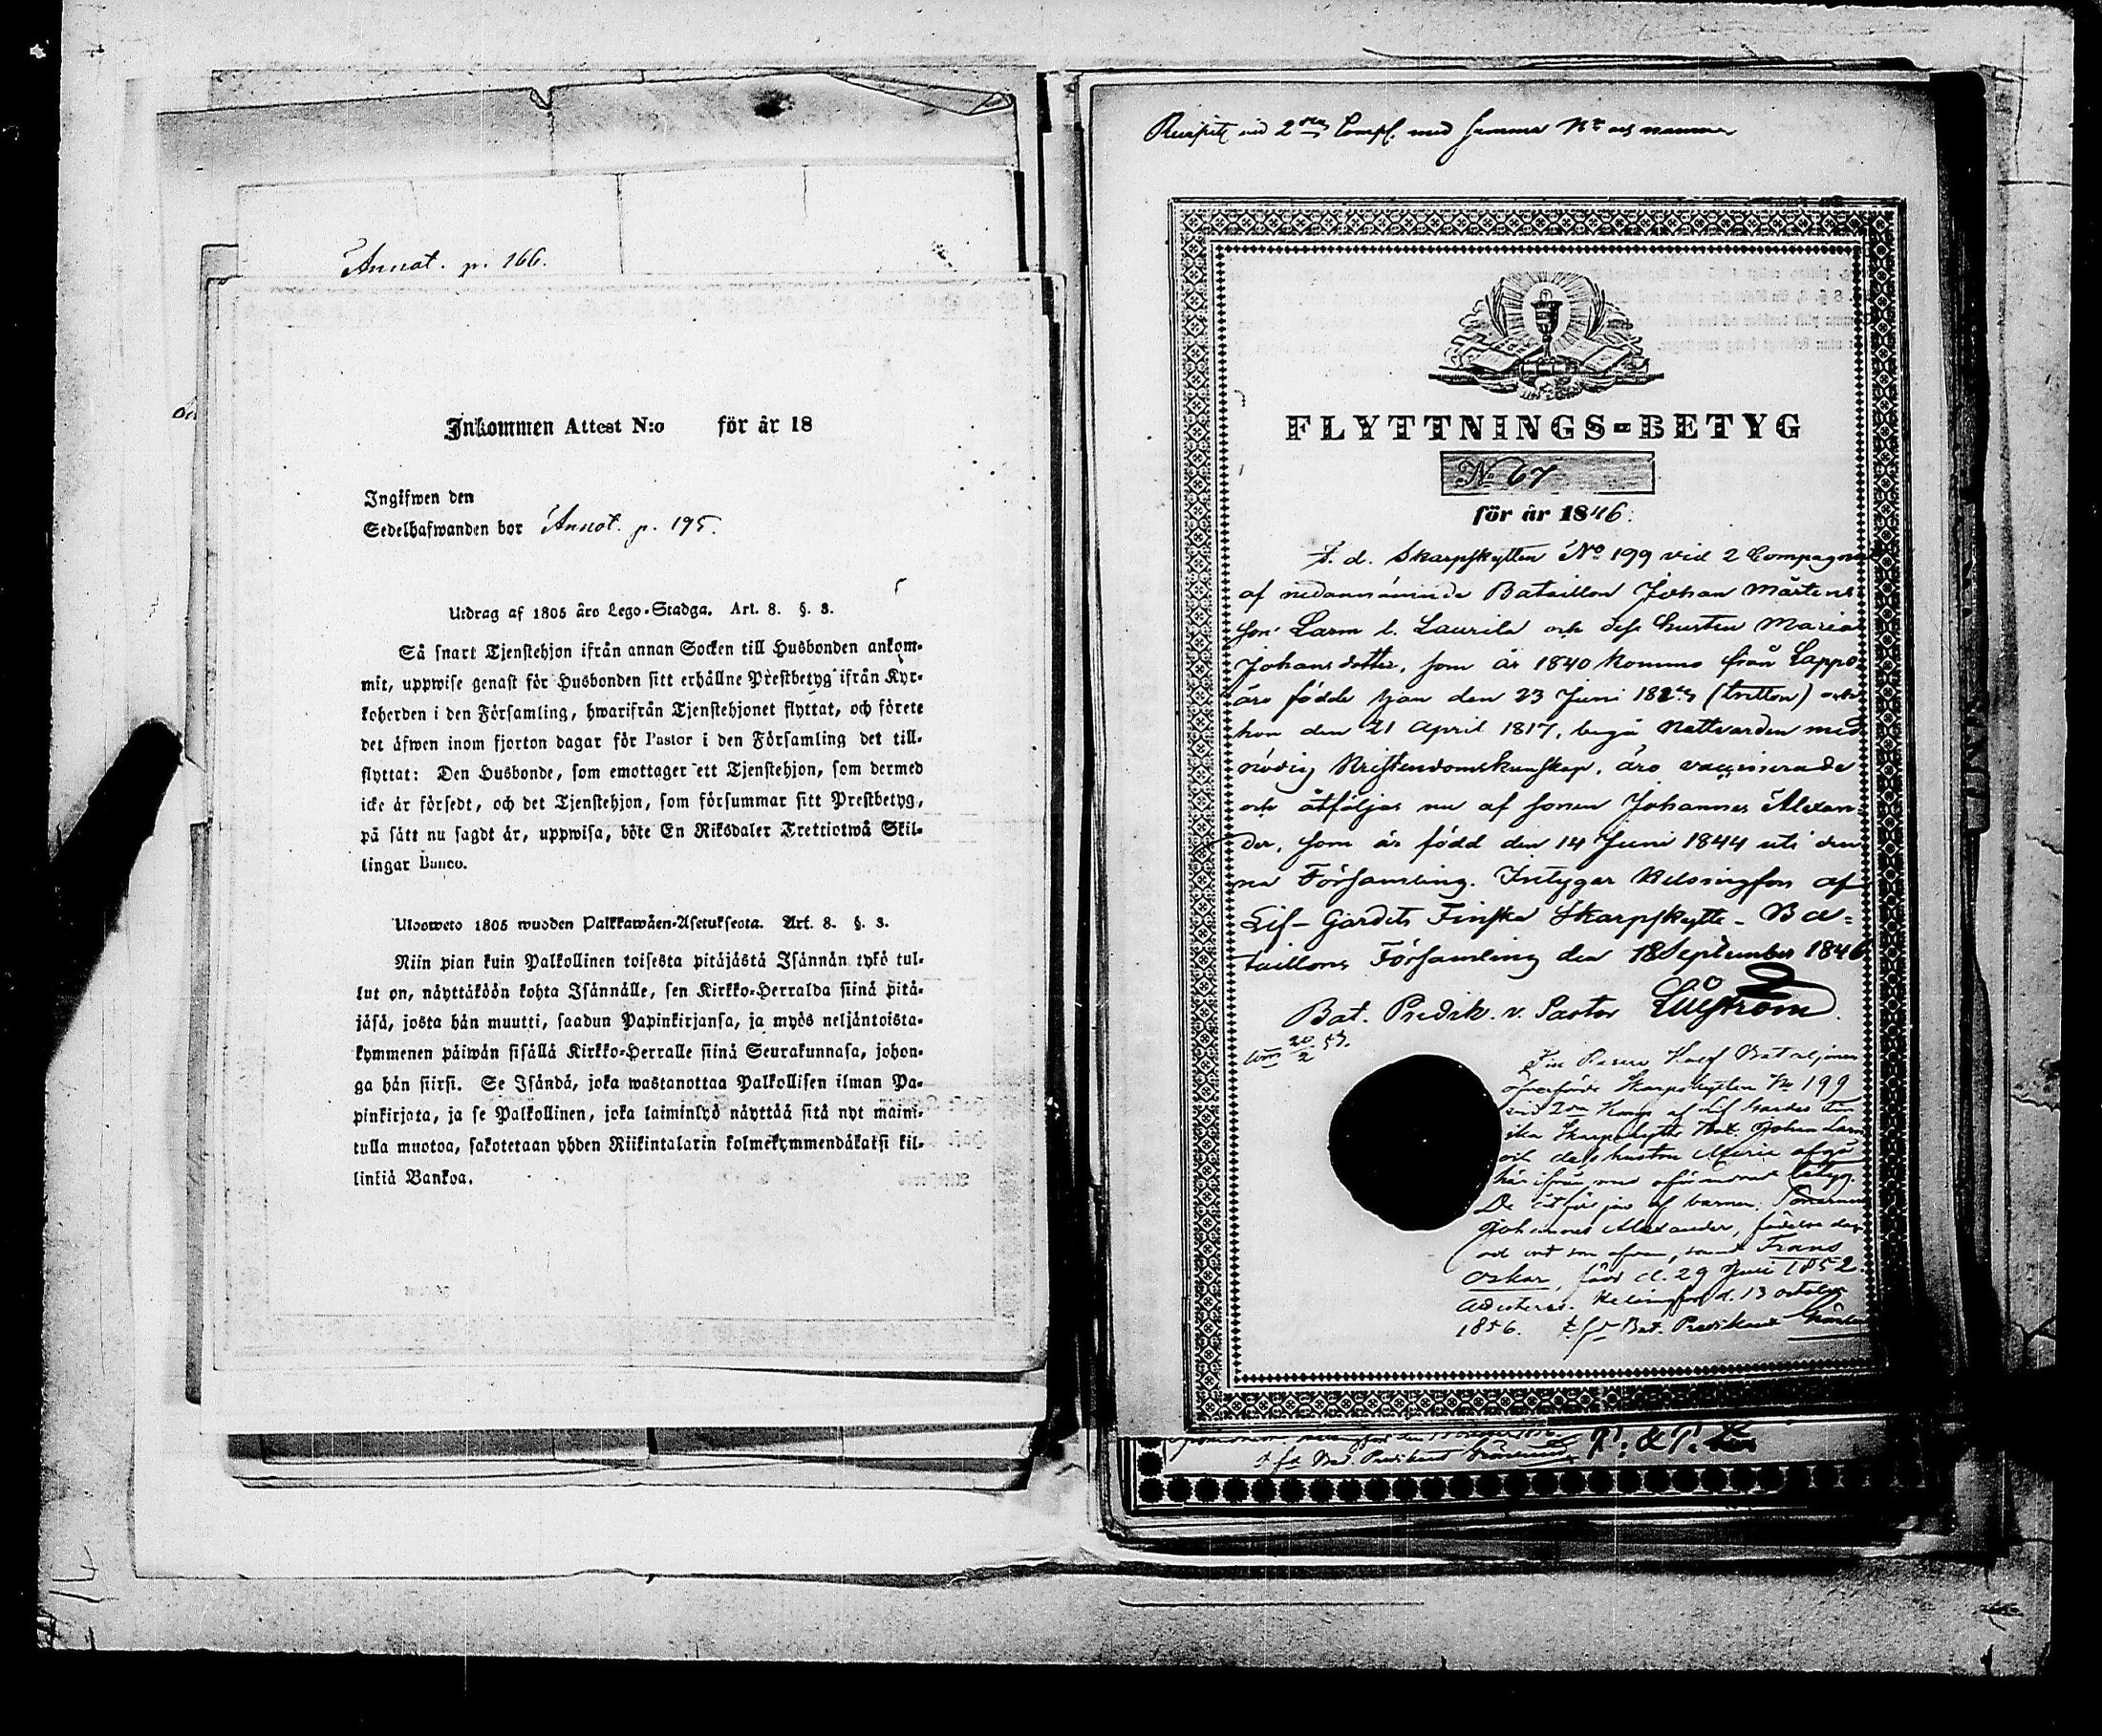 Annat. p. 166.
Inkommen Attest N:o för år 18
Ingifwen den
Sedelhafwanden bor Annot. p. 195.
Utdrag af 1805 års Lego-Stadga. Art. 8. §. 3.
Så snart Tjenstehjon ifrån annan Socken till Husbonden ankom-
mit, uppwise genast för Husbonden sitt erhållne Prestbetyg ifrån Kyr-
koherden i den Församling, hwarifrån Tjenstehjonet flyttat, och förete
det äfwen inom fjorton dagar för Pastor i den Församling det till-
flyttat: Den Husbonde, som emottager ett Tjenstehjon, som dermed
icke är försedt, och det Tjenstehjon, som försummar sitt Prestbetyg,
på sätt nu sagdt är, uppwisa, böte En Riksdaler Trettiotwå Skil-
lingar Banco.
Ulosweto 1805 wuoden Palkkawäen-Asetuksesta. Art. 8. §. 3.
Niin pian kuin Palkollinen toisesta pitäjästä Isännän tykö tul-
lut on, näyttäköön kohta Isännälle, sen Kirkko-Herralda siinä pitä-
jäsä, josta hän muutti, saadun Papinkirjansa, ja myös neljäntoista-
kymmenen päiwän sisällä Kirkko-Herralle siinä Seurakunnasa, johon-
ga hän siirsi. Se Isändä, joka wastanottaa Palkollisen ilman Pa-
pinkirjata, ja se Palkollinen, joka laiminlyö näyttää sitä nyt maini-
tulla muotoa, sakotetaan yhden Riikintalarin kolmekymmendäkaksi kil-
linkiä Bankoa.
vid 2dra Comp. med samma No och namn
FLYTTNINGS-BETYG
No 67
för år 1846.
F. d. Skarpskytten No 199 vid 2 Compagniet
af nedannämnde Bataillon Johan Mårtens
son Larm l. Laurila och dess hustru Maria
Johansdotter, som år 1840 kommo från Lappo,
äro födde han den 23 Juni (tretton) och
hon den 21 April 1817, begå Nattvarden med
nödig Kristendomskunskap, äro vaccinerade
och åtföljas nu af sonen Johannes Alexan-
der, som är född den 14 Juni 1844 uti den
na Församling. Intygar Helsingfors af
Lif-Gardets Finska Skarpskytte-Ba-
taillons Församling den 18 September 1846
Bat. Predik. v. Pastor
20/2 57.
Bataljonen
ofvanförde Skarpskytten No 199
vid 2dra Komp af Lif Gardets Fin
ska Skarpskytte Bat. Johan Larm
och dess hustru Maria afgå
härifrån med ofvanförda betyg.
De åtföljas af barnen: Sönerne
Johannes Alexander, födelse dag
och ort som ofvan, samt Frans
Oskar, född d. 29 Juni 1852.
Helsingfors d. 13 october
1856. t. f. Bat. Predikant
t. f. Bat. Predikant